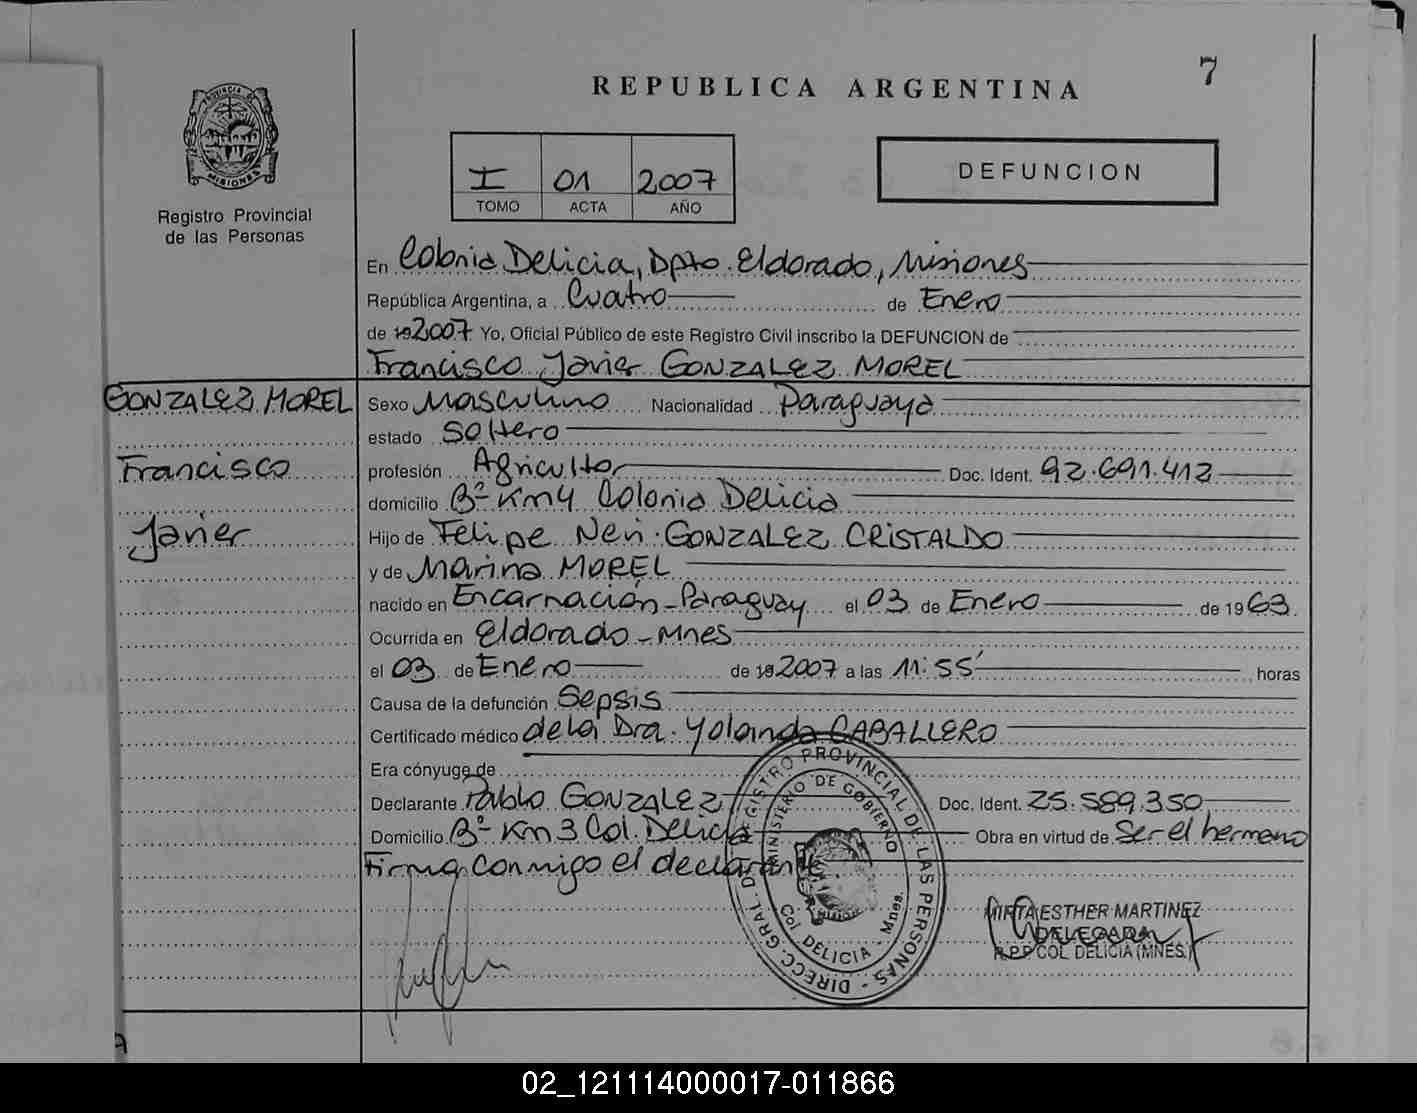 7
REPUBLICA ARGENTINA
PROVINCIA DE MISIONES
Registro Provincial
de las Personas
I 01 2007
TOMO ACTA AÑO
DEFUNCION
En Colonia Delicia, Dpto. Eldorado, Misiones
República Argentina, a Cuatro de Enero
de 192007 Yo, Oficial Público de este Registro Civil inscribo la DEFUNCION de
Francisco Javier GONZALEZ MOREL
GONZALEZ MOREL
Francisco
Javier
Sexo Masculino Nacionalidad Paraguaya
estado Soltero
profesión Agricultor Doc. Ident. 92.691.412
domicilio Bº Km4 Colonia Delicia
Hijo de Felipe Neri GONZALEZ CRISTALDO
y de Marina MOREL
nacido en Encarnación-Paraguay el 03 de Enero de 1963.
Ocurrida en Eldorado - Mnes
el 03 de Enero de 192007 a las 11:55' horas
Causa de la defunción Sepsis
Certificado médico de la Dra. Yolanda CABALLERO
Era cónyuge de
Declarante Pablo GONZALEZ Doc. Ident. 25.589.350
Domicilio Bº Km 3 Col. Delicia Obra en virtud de Ser el hermano
Firma conmigo el declarante
DIRECC. GRAL. DE REGISTRO PROVINCIAL DE LAS PERSONAS
MINISTERIO DE GOBIERNO
Col. DELICIA - Mnes.
MIRTA ESTHER MARTINEZ
DELEGADA
R.P.P COL. DELICIA (MNES.)
02_121114000017-011866